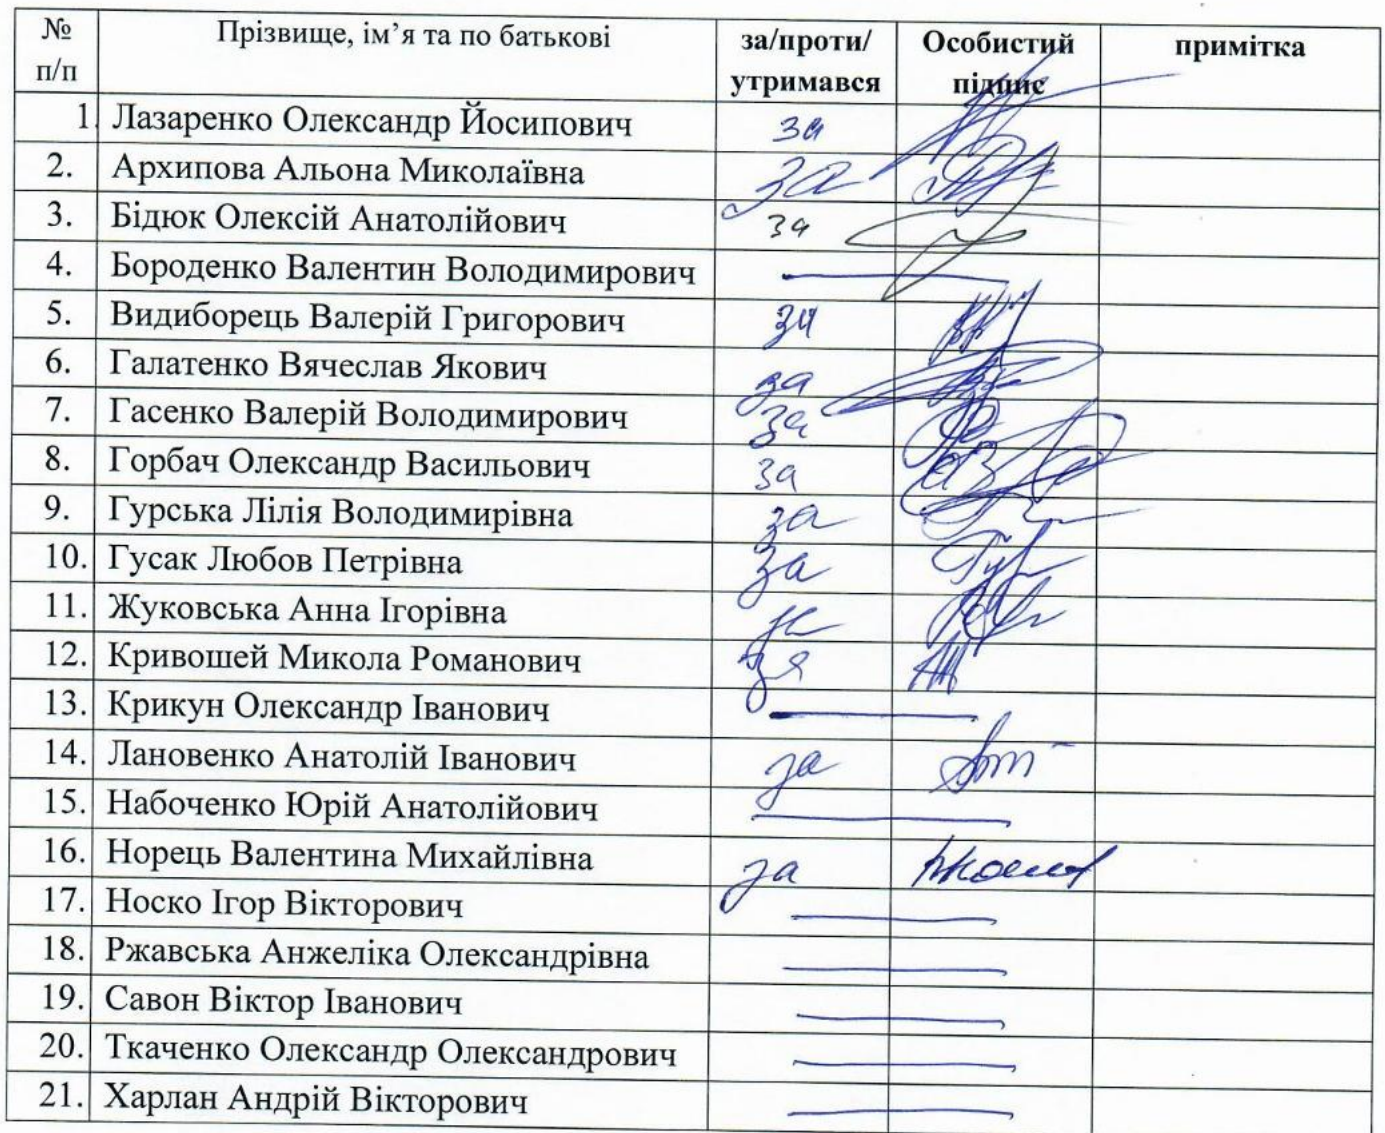 № п/п Прізвище, ім’я та по батькові за/проти/ утримався Особистий підпис примітка
1. Лазаренко Олександр Йосипович за
2. Архипова Альона Миколаївна за
3. Бідюк Олексій Анатолійович за
4. Бороденко Валентин Володимирович
5. Видиборець Валерій Григорович за
6. Галатенко Вячеслав Якович за
7. Гасенко Валерій Володимирович за
8. Горбач Олександр Васильович за
9. Гурська Лілія Володимирівна за
10. Гусак Любов Петрівна за
11. Жуковська Анна Ігорівна за
12. Кривошей Микола Романович за
13. Крикун Олександр Іванович
14. Лановенко Анатолій Іванович за
15. Набоченко Юрій Анатолійович
16. Норець Валентина Михайлівна за
17. Носко Ігор Вікторович
18. Ржавська Анжеліка Олександрівна
19. Савон Віктор Іванович
20. Ткаченко Олександр Олександрович
21. Харлан Андрій Вікторович